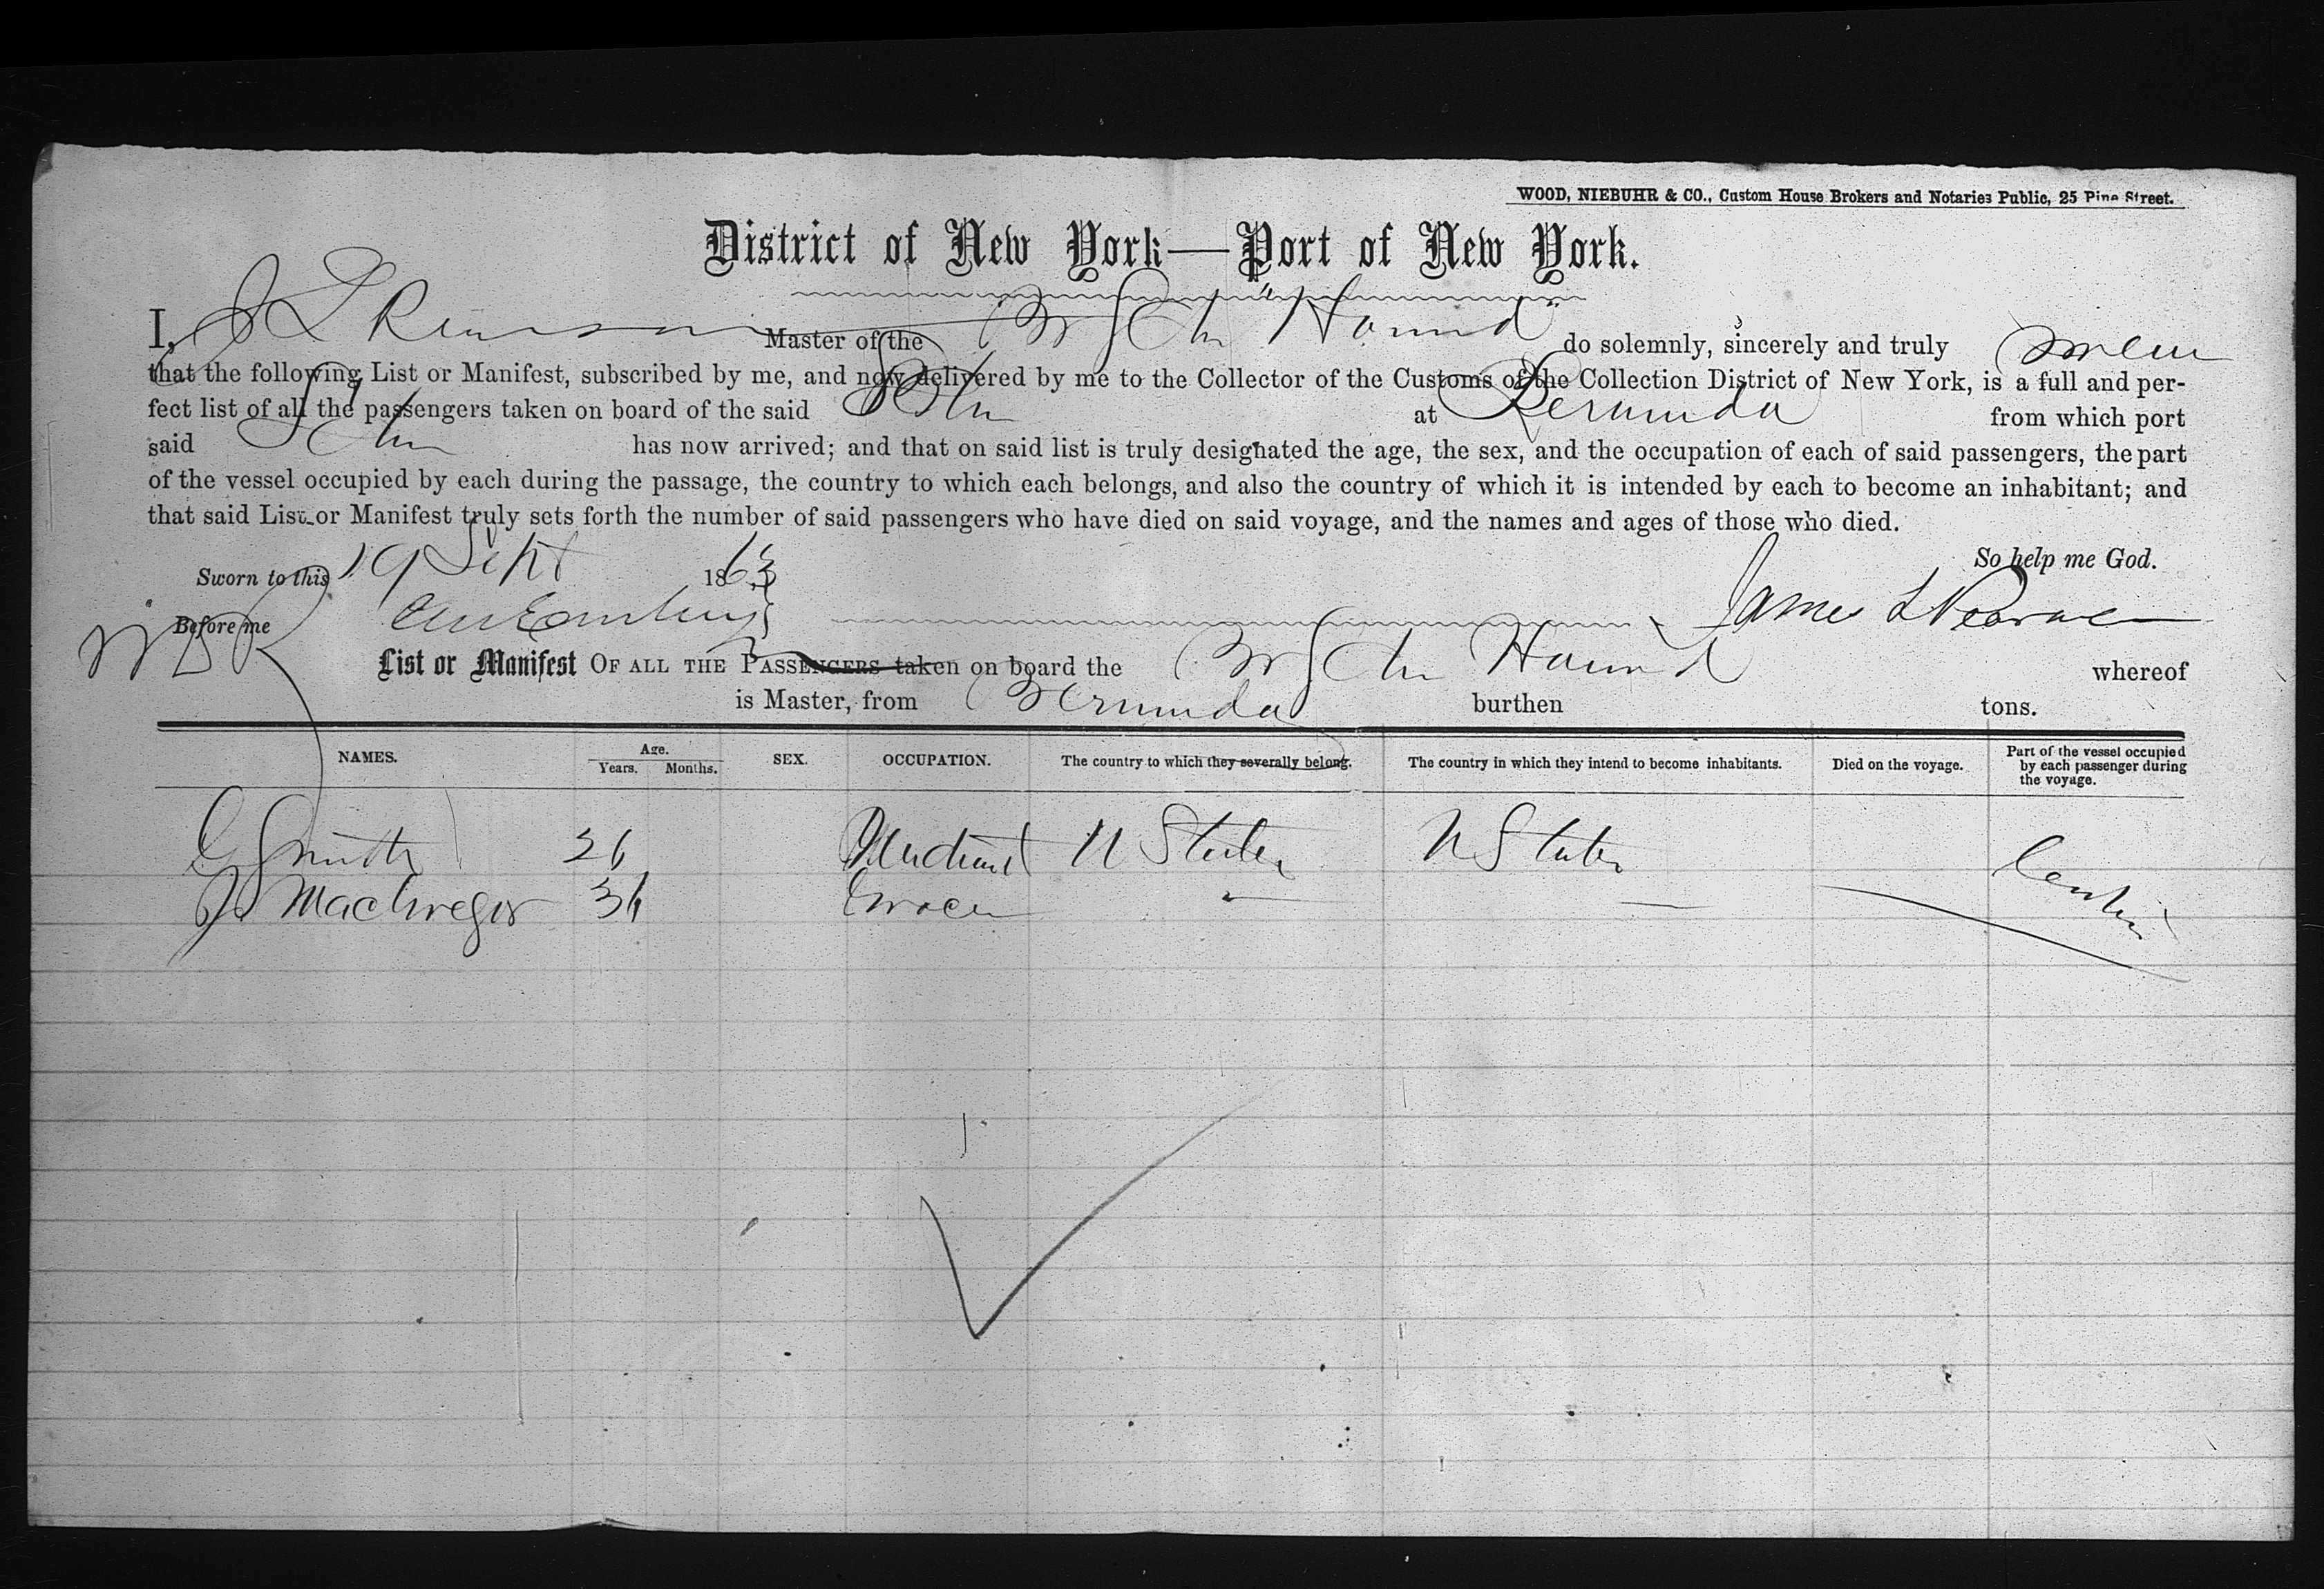 WOOD, NIEBUHR & CO., Custom House Brokers and Notaries Public, 25 Pine Street.
District of New York—Port of New York.
I, J L Master of the Br Schr "Hound" do solemnly, sincerely and truly swear
that the following List or Manifest, subscribed by me, and now delivered by me to the Collector of the Customs of the Collection District of New York, is a full and per-
fect list of all the passengers taken on board of the said Schr at Bermuda from which port
said Schr has now arrived; and that on said list is truly designated the age, the sex, and the occupation of each of said passengers, the part
of the vessel occupied by each during the passage, the country to which each belongs, and also the country of which it is intended by each to become an inhabitant; and
that said List or Manifest truly sets forth the number of said passengers who have died on said voyage, and the names and ages of those who died.
So help me God.
Sworn to this 19 Sept 1863
Before me James L
List or Manifest OF ALL THE PASSENGERS taken on board the Br Schr Hound whereof
is Master, from Bermuda burthen tons.
NAMES. Age. Years. Months. SEX. OCCUPATION. The country to which they severally belong. The country in which they intend to become inhabitants. Died on the voyage. Part of the vessel occupied by each passenger during the voyage.
G Smith 26 Merchant U States U States Cabin
J. MacGregor 36 Grocer — —